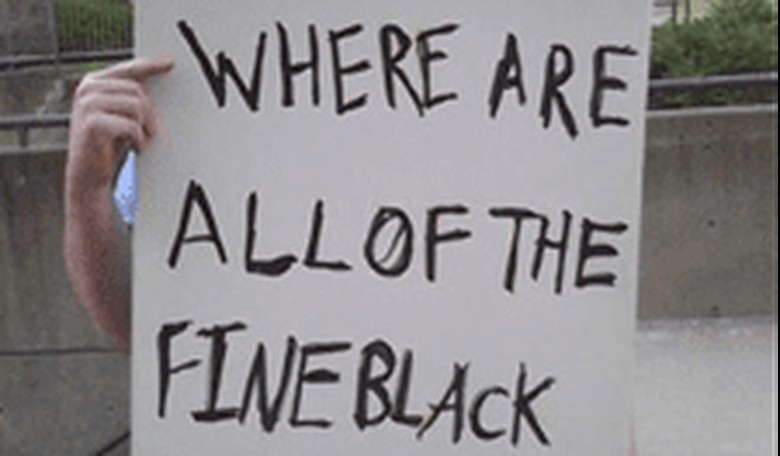 WHERE ARE
ALL OF THE
FINE BLACK